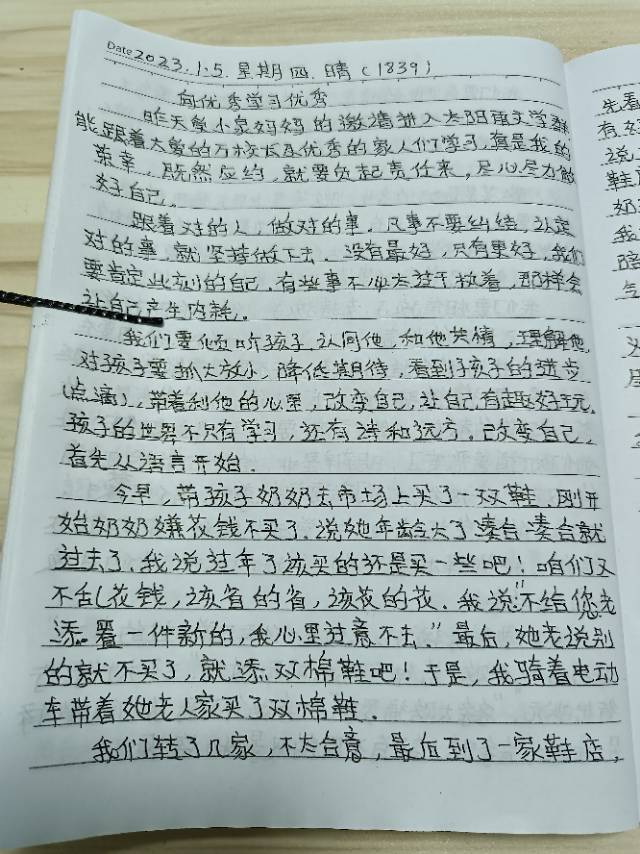 Date 2023.1.5.星期四.晴(1839)
向优秀学习优秀
昨天受小泉妈妈的邀请进入太阳雨文学群
能跟着大爱的万校长及优秀的家人们学习,真是我的
荣幸,既然应约,就要负起责任来,尽心尽力做
好自己。
跟着对的人,做对的事,凡事不要纠结,认定
对的事,就坚持做下去.没有最好,只有更好,我们
要肯定此刻的自己,有些事不必太过于执着,那样会
让自己产生内耗.
我们要倾听孩子,认同他,和他共情,理解他.
对孩子要抓大放小,降低期待,看到孩子的进步
(点滴),带着利他的心里,改变自己,让自己有趣好玩.
孩子的世界不只有学习,还有诗和远方.改变自己,
首先从语言开始.
今早,带孩子奶奶去市场上买了一双鞋,刚开
始奶奶嫌花钱不买了.说她年龄大了凑合凑合就
过去了.我说过年了该买的还是买一些吧!咱们又
不乱花钱,该省的省,该花的花.我说:"不给您老
添置一件新的,我心里过意不去."最后,她老说别
的就不买了,就添双棉鞋吧!于是,我骑着电动
车带着她老人家买了双棉鞋.
我们转了几家,不太合意,最后到了一家鞋店,
先看
有
说
鞋
奶
我
气